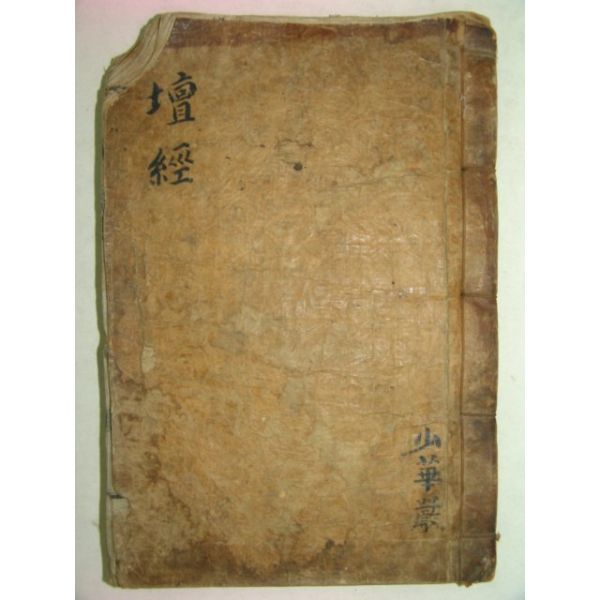 壇經
山華嚴